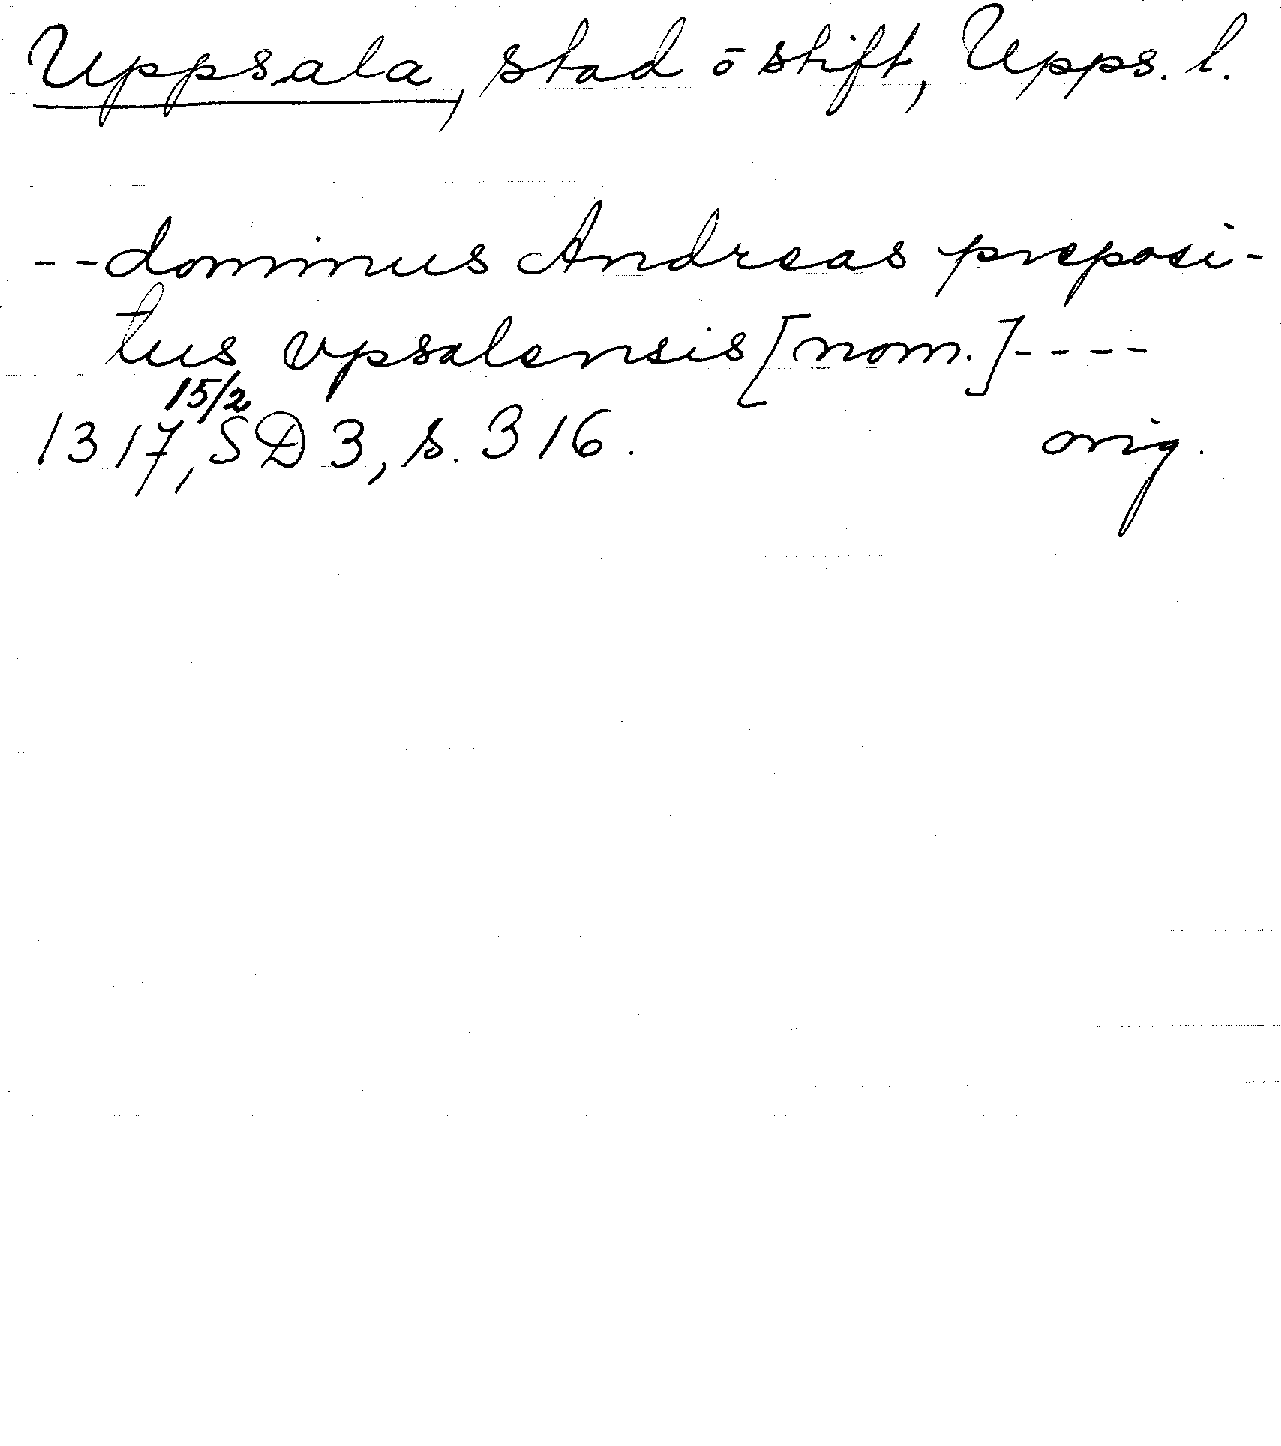 Uppsala, stad o stift, Upps. l.
--dominus Andreas preposi-
tus vpsalensis [nom.]----
15/2
1317, SD 3, s. 316. orig.